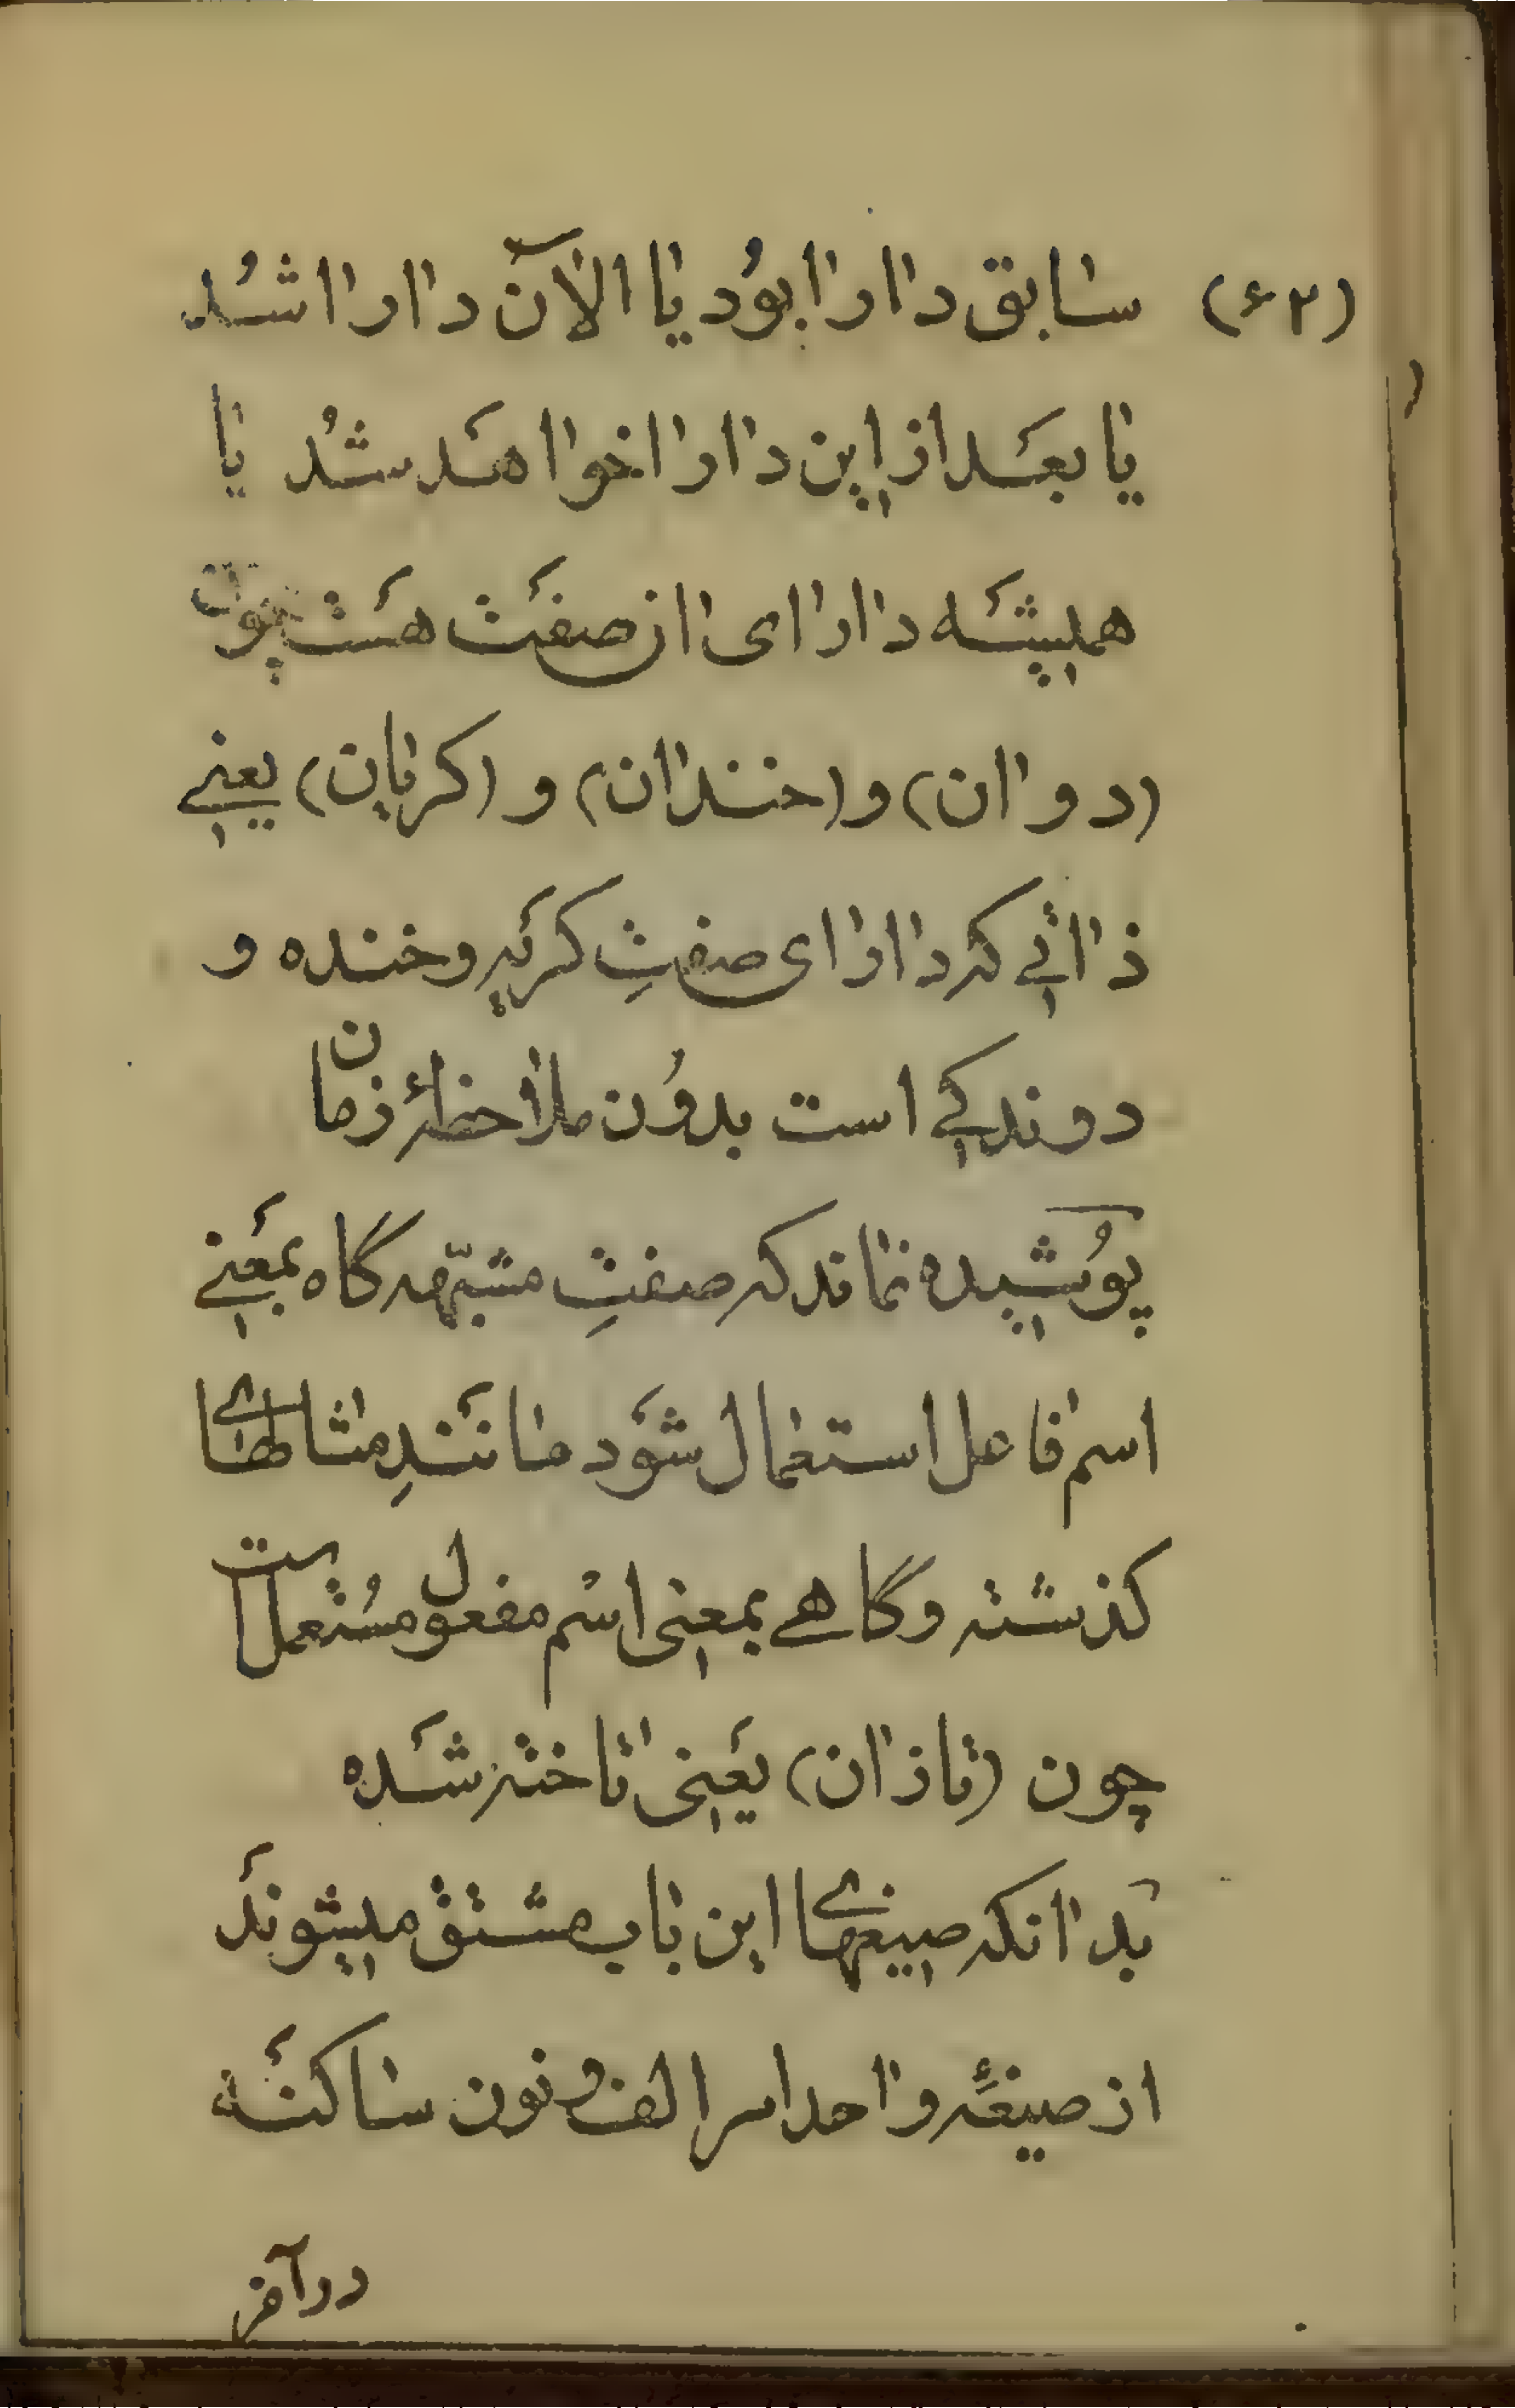 (۶۲) سابق دارا بوُد یا الآن دارا شُد
یا بعَد از این دارا خواهَد شُد یا
همیشَه دارای ان صفَت هَست چون
(دوان) و (خندان) و (کریان) یعنے
ذاتے که داراى صفتِ کریَه و خنده و
دوندکے است بدوُن ملاحظهٔ زمان
پوُشیده نماند که صفتِ مشبّهه گاه بمعَنے
اسم فاعل استعمال شَود مانَندِ مثالهاے
کذشته و گاهے بمعنى اسْم مفعول مسُتعمل است
چون (تازان) یعَنى تاخته شَده
بدانکه صیغهاے این باب مشتق میشوندَ
از صیغهٔ واحد امر الف و نون ساکنَه
در آخر